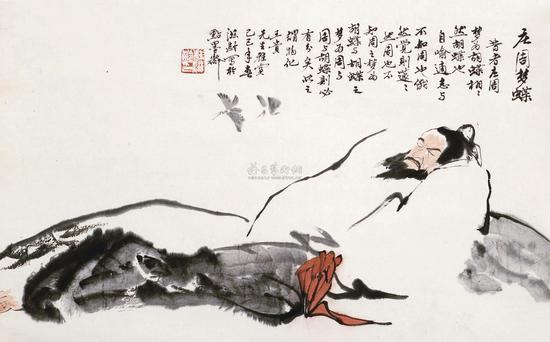 庄周梦蝶
昔者庄周
梦为胡蝶栩々
然胡蝶也
自喻適志与
不知周也俄
然觉则蘧々
然周也不
知周之梦为
胡蝶与胡蝶之
梦为周与
周与胡蝶则必
有分矣此之
谓物化
王贵
先生雅赏
己巳年春